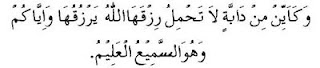 وَكَأَيِّنْ مِنْ دَابَّةٍ لَا تَحْمِلُ رِزْقَهَا اللّٰهُ يَرْزُقُهَا وَإِيَّاكُمْ
وَهُوَ السَّمِيعُ الْعَلِيْمُ.